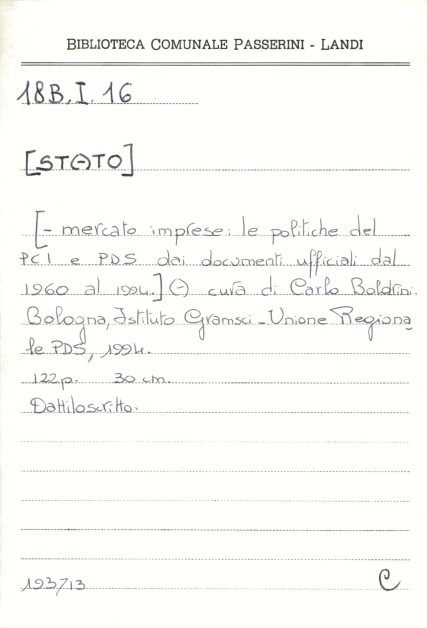 BIBLIOTECA COMUNALE PASSERINI - LANDI
18B.I.16
[STATO]
[- mercato imprese: le politiche del
PCI e PDS dai documenti ufficiali dal
1960 al 1994.] (-) cura di Carlo Boldrini.
Bologna, Istituto Gramsci - Unione Regiona
le PDS, 1994.
122p. 30 cm.
Dattiloscritto.
193713
C